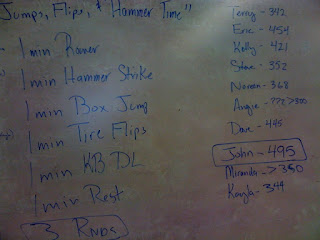 Jumps, Flips, & Hammer Time"
1 min Rower
1 min Hammer Strike
1 min Box Jump
1 min Tire Flips
1 min KB DL
1 min Rest
3 Rnds
Terry - 392
Eric - 454
Kelly - 421
Steve - 352
Norman - 368
Angie - ??? >300
Dave - 445
John - 495
Miranda - >350
Kayla - 344